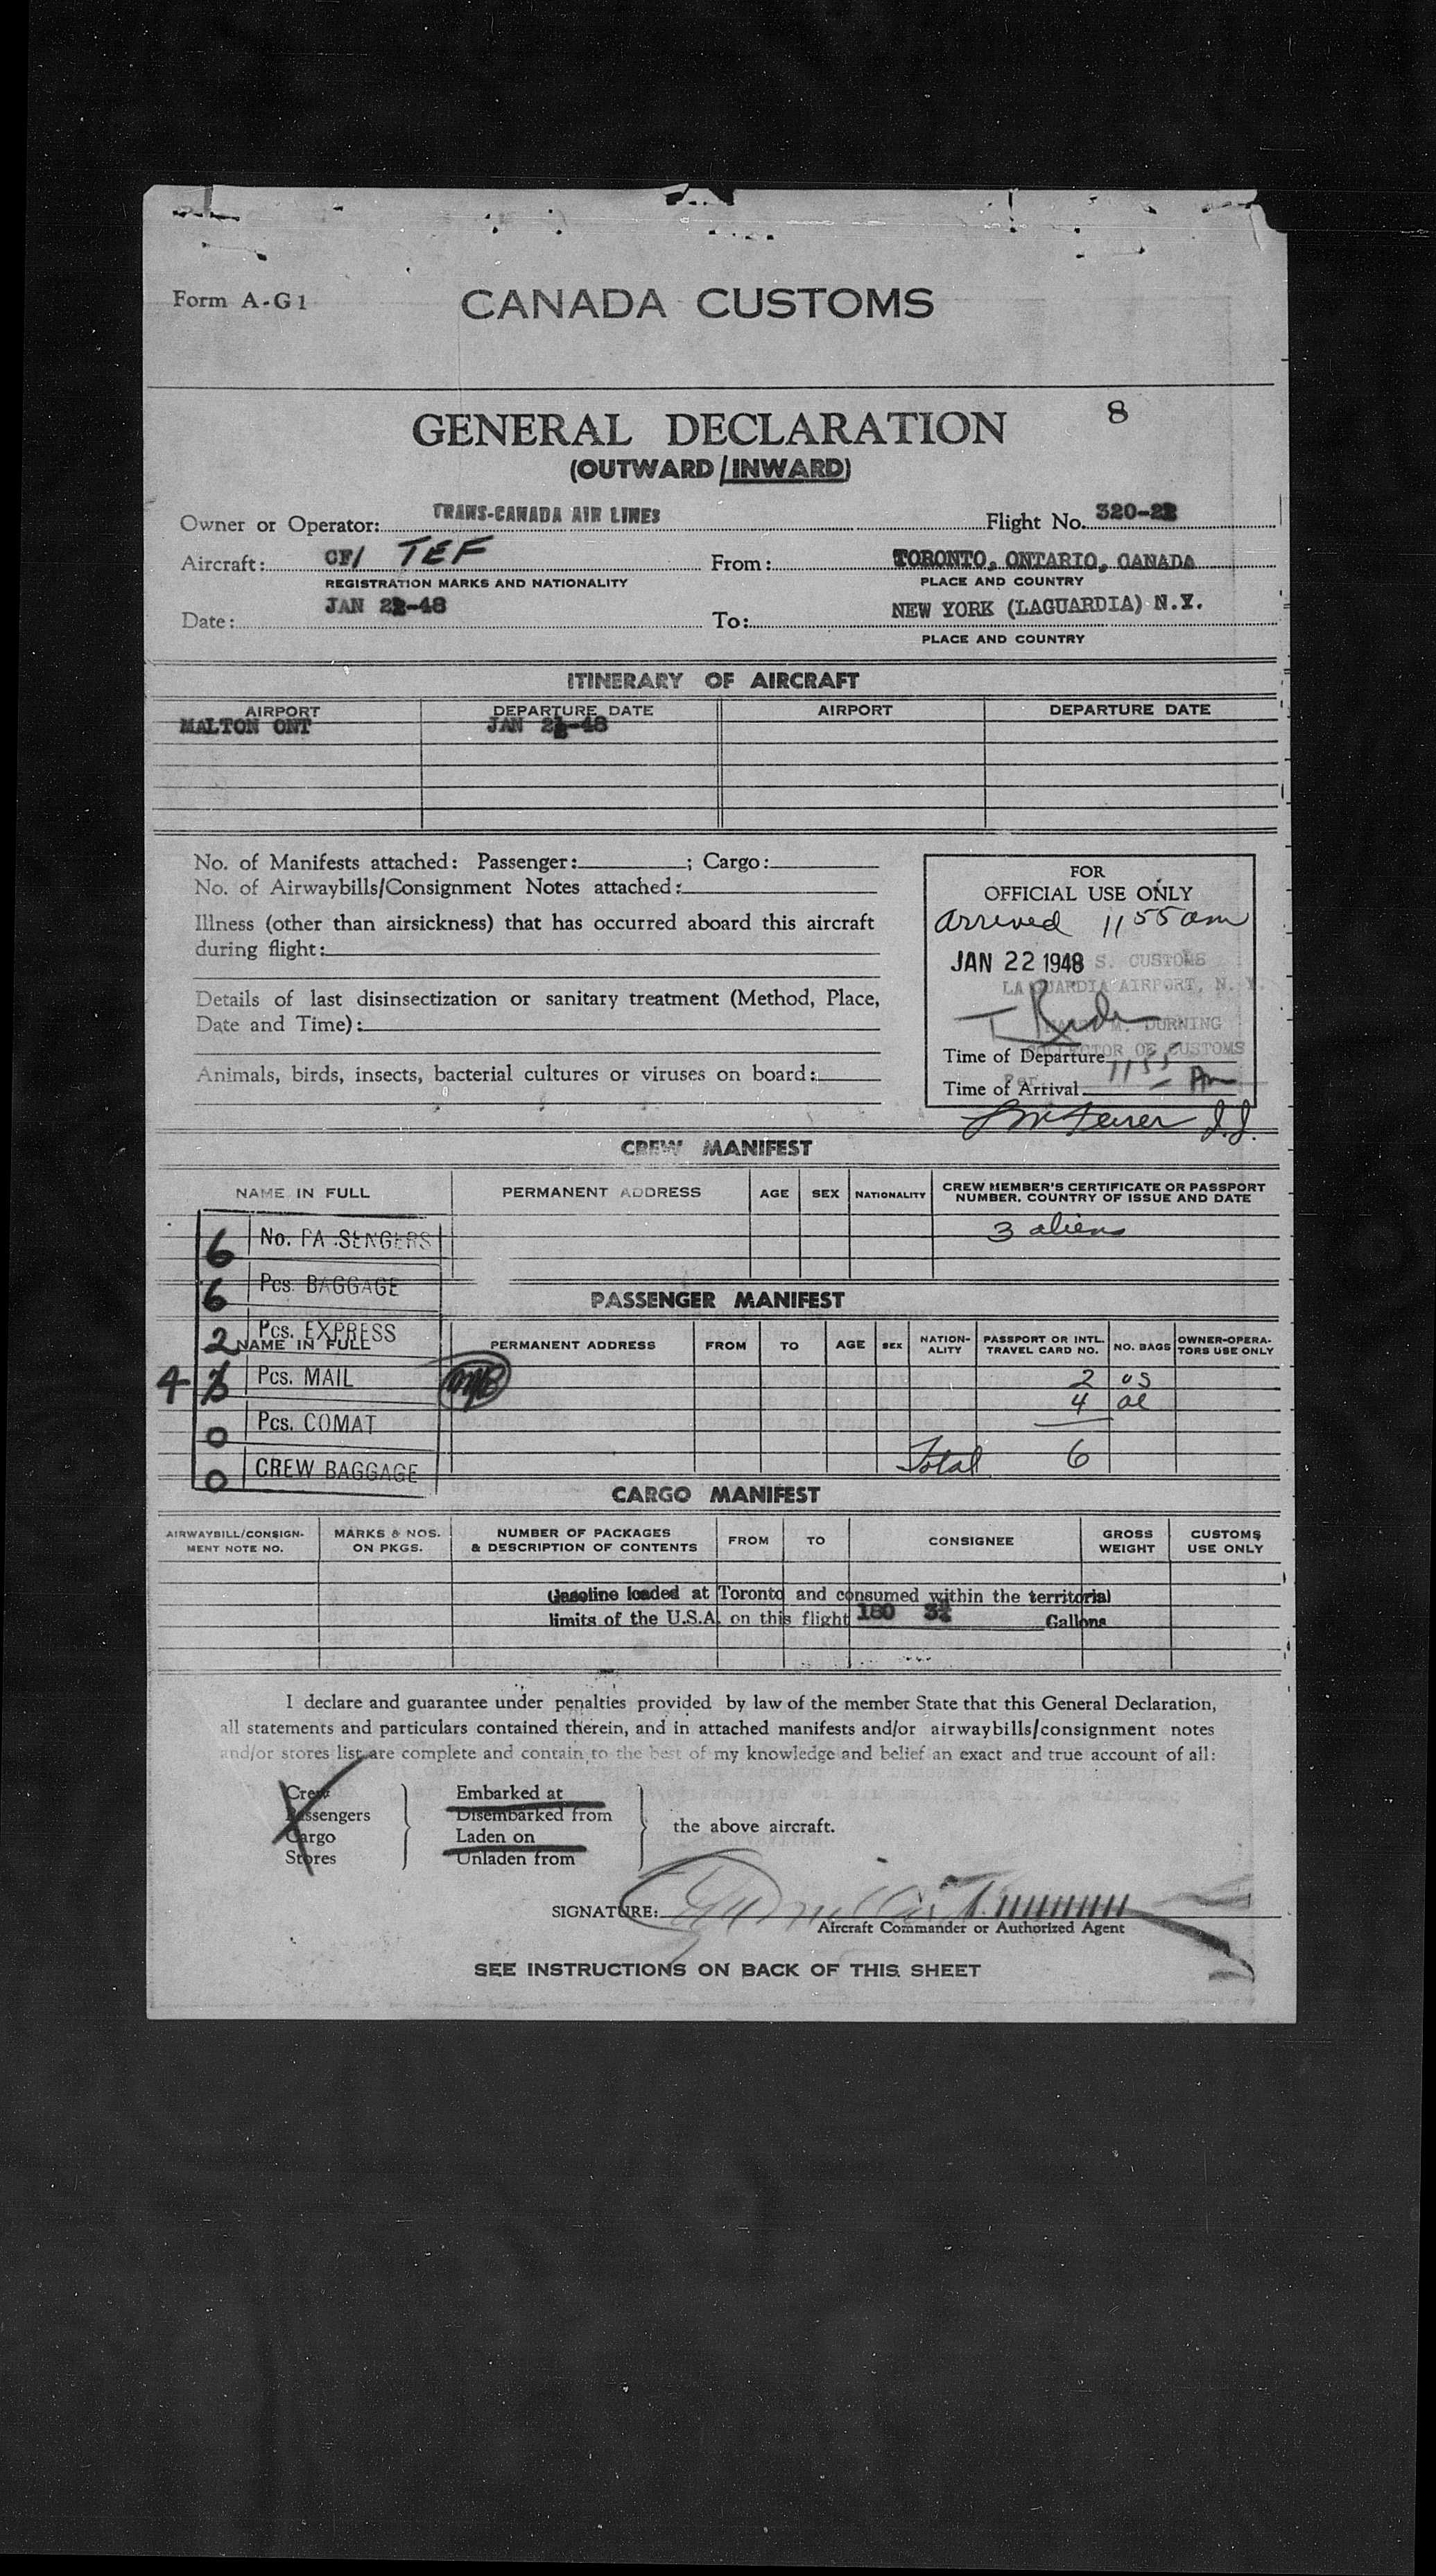 Form A-G1
CANADA CUSTOMS
8
GENERAL DECLARATION
(OUTWARD/INWARD)
Owner or Operator: TRANS-CANADA AIR LINES Flight No. 320-22
Aircraft: CF/ TEF From: TORONTO, ONTARIO, CANADA
REGISTRATION MARKS AND NATIONALITY PLACE AND COUNTRY
Date: JAN 22-48 To: NEW YORK (LAGUARDIA) N.Y.
PLACE AND COUNTRY
ITINERARY OF AIRCRAFT
AIRPORT DEPARTURE DATE AIRPORT DEPARTURE DATE
MALTON ONT JAN 22-48
No. of Manifests attached: Passenger: ; Cargo:
No. of Airwaybills/Consignment Notes attached:
Illness (other than airsickness) that has occurred aboard this aircraft
during flight:
Details of last disinsectization or sanitary treatment (Method, Place,
Date and Time):
Animals, birds, insects, bacterial cultures or viruses on board:
FOR
OFFICIAL USE ONLY
Arrived 11 55 am
JAN 22 1948 S. CUSTOMS
LA GUARDIA AIRPORT, N. Y.
M. DURNING
COLLECTOR OF CUSTOMS
Time of Departure
Time of Arrival 1155
CREW MANIFEST
NAME IN FULL PERMANENT ADDRESS AGE SEX NATIONALITY CREW MEMBER'S CERTIFICATE OR PASSPORT NUMBER, COUNTRY OF ISSUE AND DATE
3 aliens
6 No. PASSENGERS
6 Pcs. BAGGAGE
PASSENGER MANIFEST
2 Pcs. EXPRESS
NAME IN FULL PERMANENT ADDRESS FROM TO AGE SEX NATION-ALITY PASSPORT OR INTL. TRAVEL CARD NO. NO. BAGS OWNER-OPERA-TORS USE ONLY
4 Pcs. MAIL 2 us
4 al
0 Pcs. COMAT
Total 6
0 CREW BAGGAGE
CARGO MANIFEST
AIRWAYBILL/CONSIGN-MENT NOTE NO. MARKS & NOS. ON PKGS. NUMBER OF PACKAGES & DESCRIPTION OF CONTENTS FROM TO CONSIGNEE GROSS WEIGHT CUSTOMS USE ONLY
Gasoline loaded at Toronto and consumed within the territorial
limits of the U.S.A. on this flight 180 Gallons
I declare and guarantee under penalties provided by law of the member State that this General Declaration,
all statements and particulars contained therein, and in attached manifests and/or airwaybills/consignment notes
and/or stores list are complete and contain to the best of my knowledge and belief an exact and true account of all:
Crew Embarked at
Passengers Disembarked from
the above aircraft.
Cargo Laden on
Stores Unladen from
SIGNATURE:
Aircraft Commander or Authorized Agent
SEE INSTRUCTIONS ON BACK OF THIS SHEET